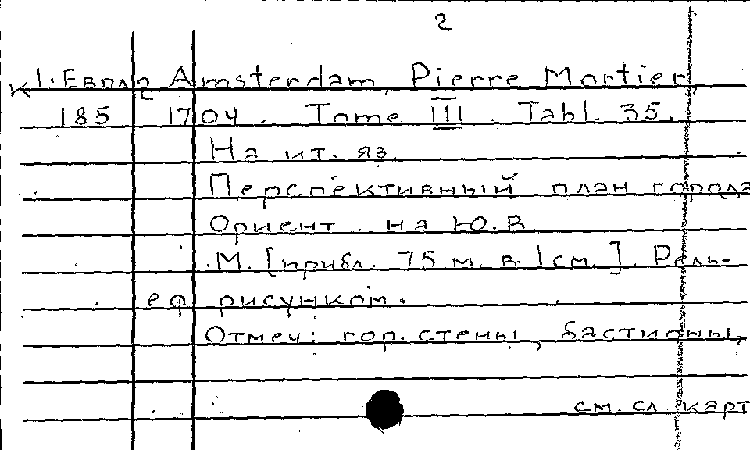 2
К1: Европ 2 Amsterdam, Pierre Mortier,
185 1704. Tome III. Tabl. 35.
На ит. яз.
Перспективный план города
Ориент. на Ю.В.
М. [прибл. 75 м. в 1 см.]. Рель-
еф рисунком.
Отмеч: гор. стены, бастионы,
см. сл. карт